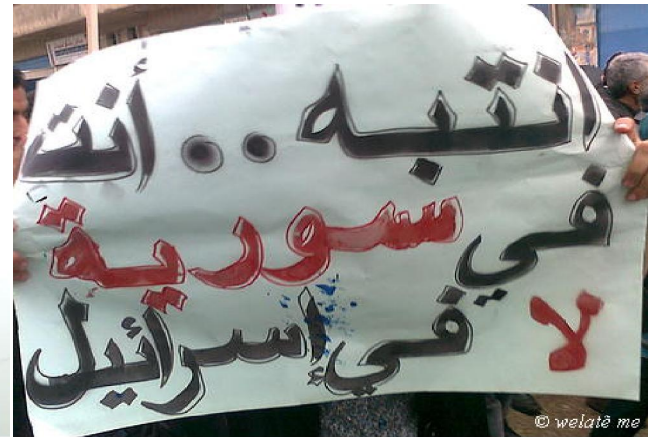 انتبه .. أنت
في سورية
لا في إسرائيل
© welatê me